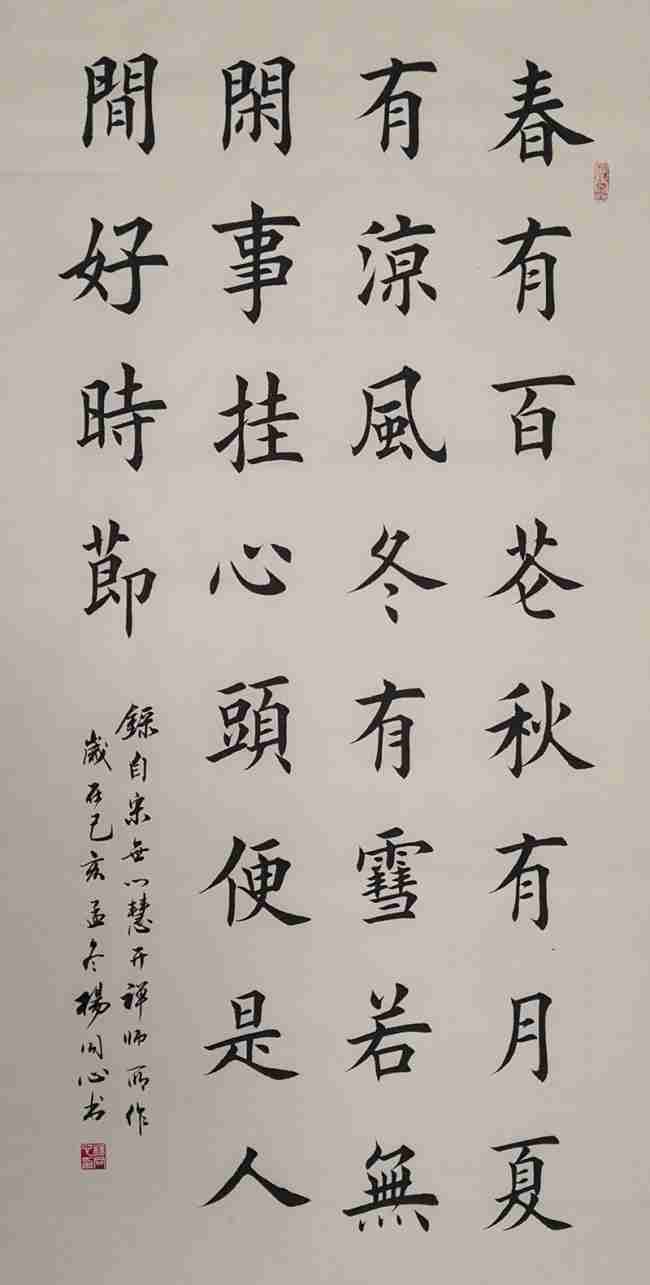 春有百花秋有月夏
有涼風冬有雪若無
閑事挂心頭便是人
間好時節
錄自宋無門慧開禪師所作
歲在己亥孟冬楊同心书